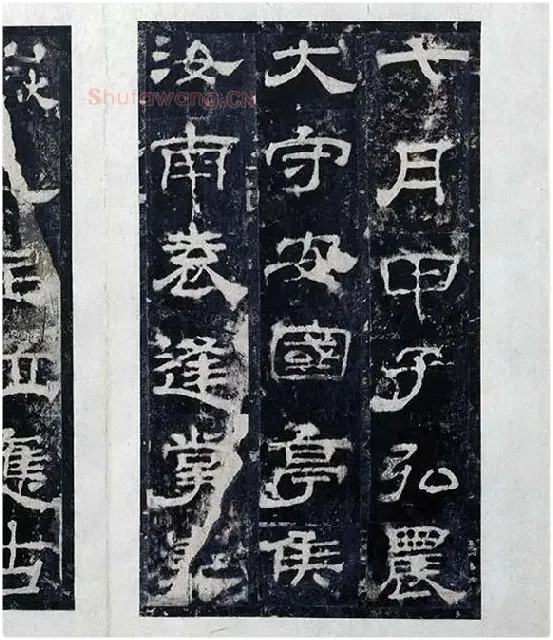 七月甲子弘農
大守安國亭侯
汝南袁逢掌
應古
Shufawang.CN